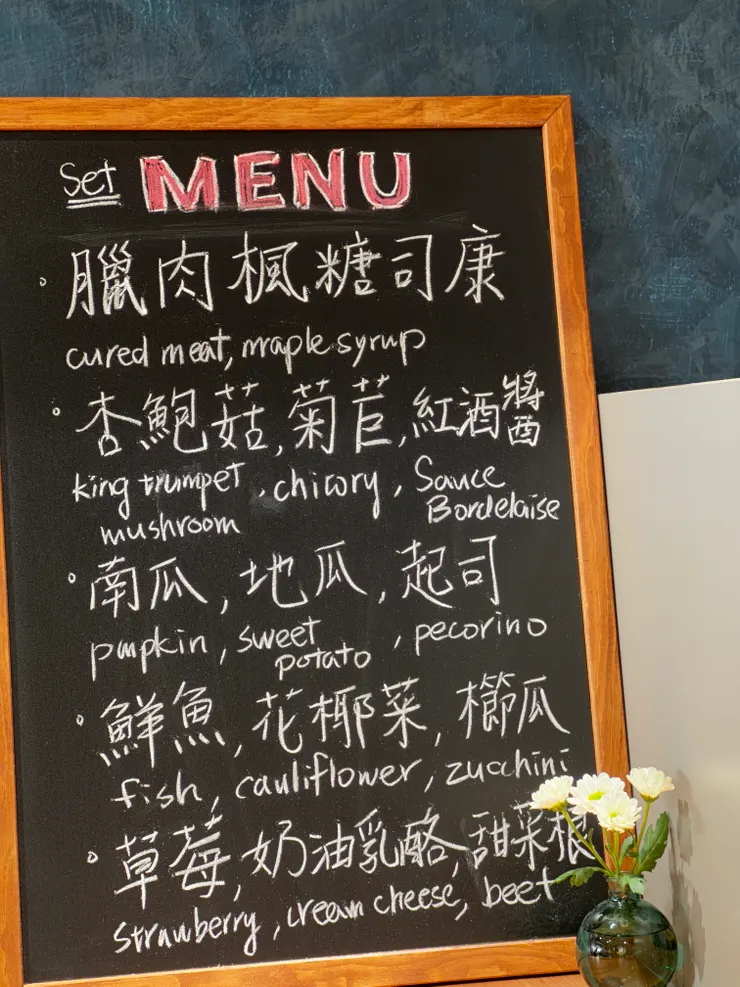 Set MENU
臘肉楓糖司康
cured meat, maple syrup
杏鮑菇, 菊苣, 紅酒醬
king trumpet mushroom, chicory, Sauce Bordelaise
南瓜, 地瓜, 起司
pmpkin, sweet potato, pecorino
鮮魚, 花椰菜, 櫛瓜
fish, cauliflower, zucchini
草莓, 奶油乳酪, 甜菜根
strawberry, cream cheese, beet